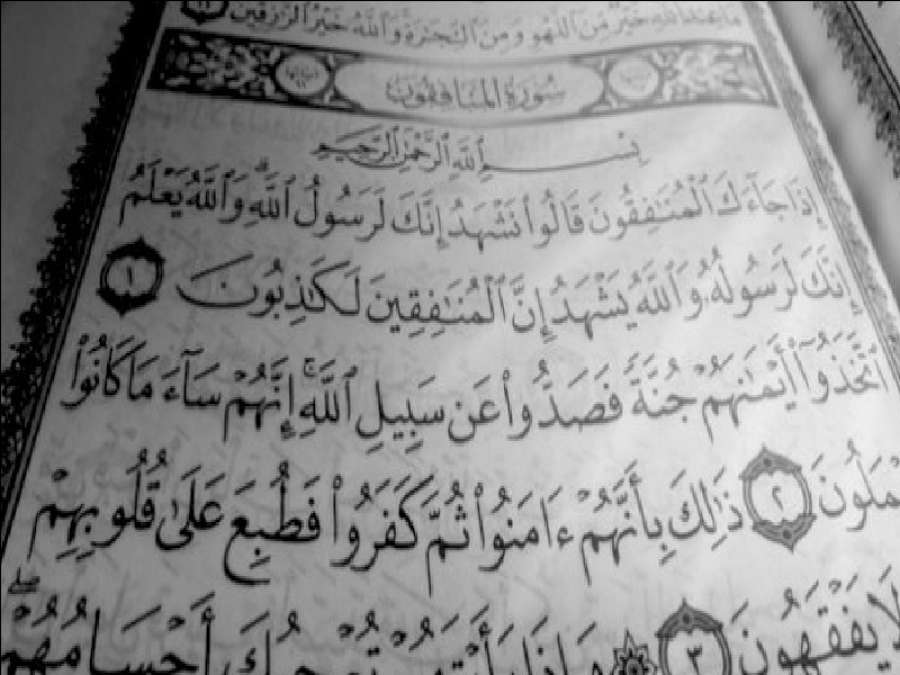 ما عند الله خير من اللهو ومن التجرة والله خير الرزقين ١١
سورة المنافقون
بسم الله الرحمن الرحيم
إِذَا جَآءَكَ ٱلْمُنَـٰفِقُونَ قَالُوا۟ نَشْهَدُ إِنَّكَ لَرَسُولُ ٱللَّهِ ۗ وَٱللَّهُ يَعْلَمُ
إِنَّكَ لَرَسُولُهُۥ وَٱللَّهُ يَشْهَدُ إِنَّ ٱلْمُنَـٰفِقِينَ لَكَـٰذِبُونَ ١
ٱتَّخَذُوٓا۟ أَيْمَـٰنَهُمْ جُنَّةً فَصَدُّوا۟ عَن سَبِيلِ ٱللَّهِ ۚ إِنَّهُمْ سَآءَ مَا كَانُوا۟
يَعْمَلُونَ ٢ ذَٰلِكَ بِأَنَّهُمْ ءَامَنُوا۟ ثُمَّ كَفَرُوا۟ فَطُبِعَ عَلَىٰ قُلُوبِهِمْ
لَا يَفْقَهُونَ ٣ ۞ وَإِذَا رَأَيْتَهُمْ تُعْجِبُكَ أَجْسَامُهُمْ ۖ